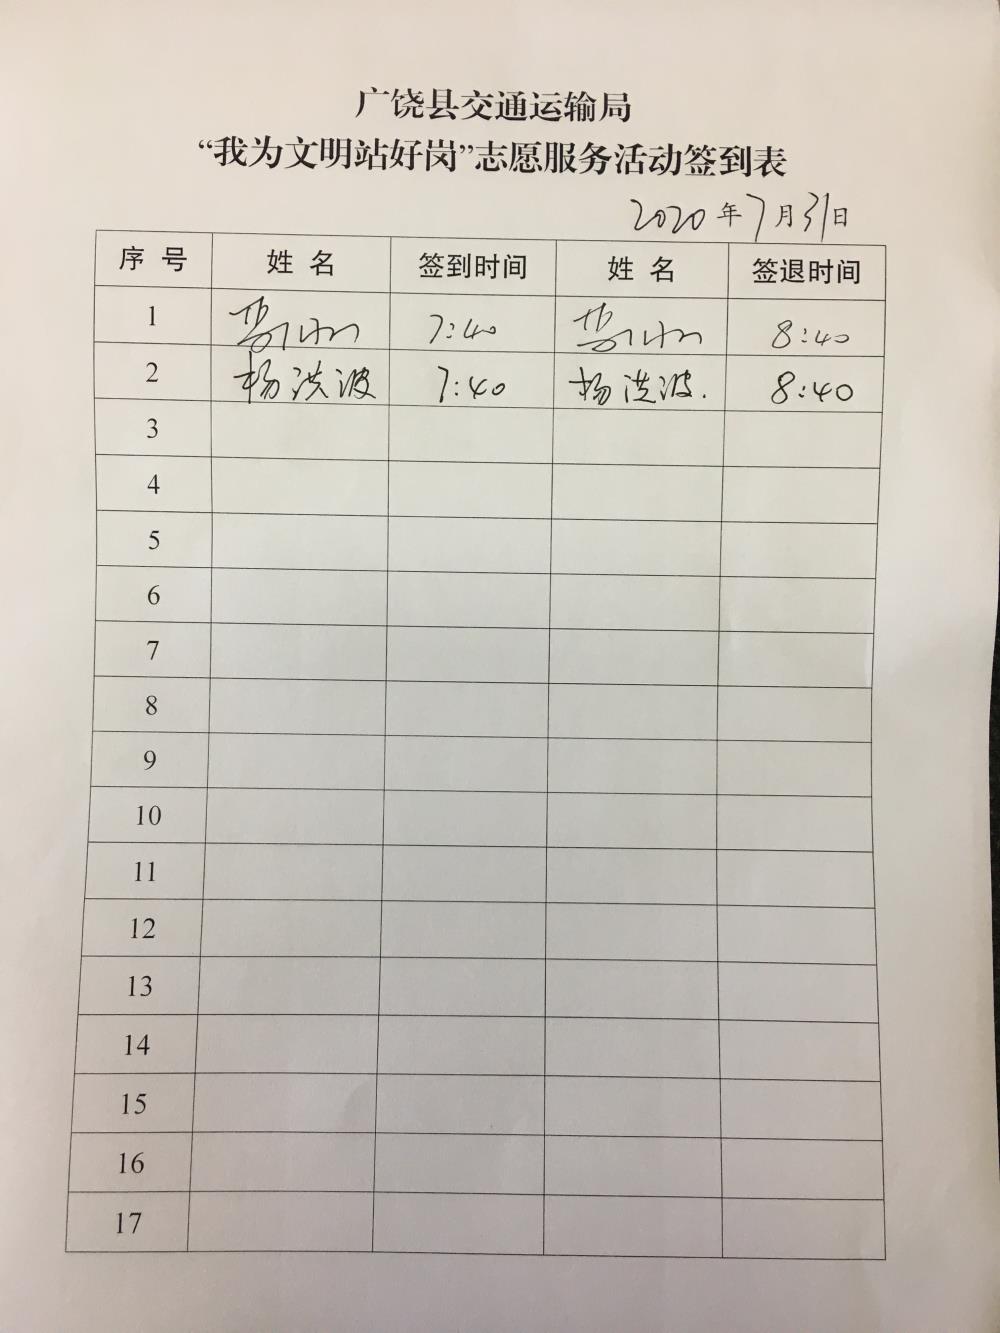 广饶县交通运输局
“我为文明站好岗”志愿服务活动签到表
2020年7月31日
序 号 姓 名 签到时间 姓 名 签退时间
1 7:40 8:40
2 杨洪波 7:40 杨洪波. 8:40
3
4
5
6
7
8
9
10
11
12
13
14
15
16
17